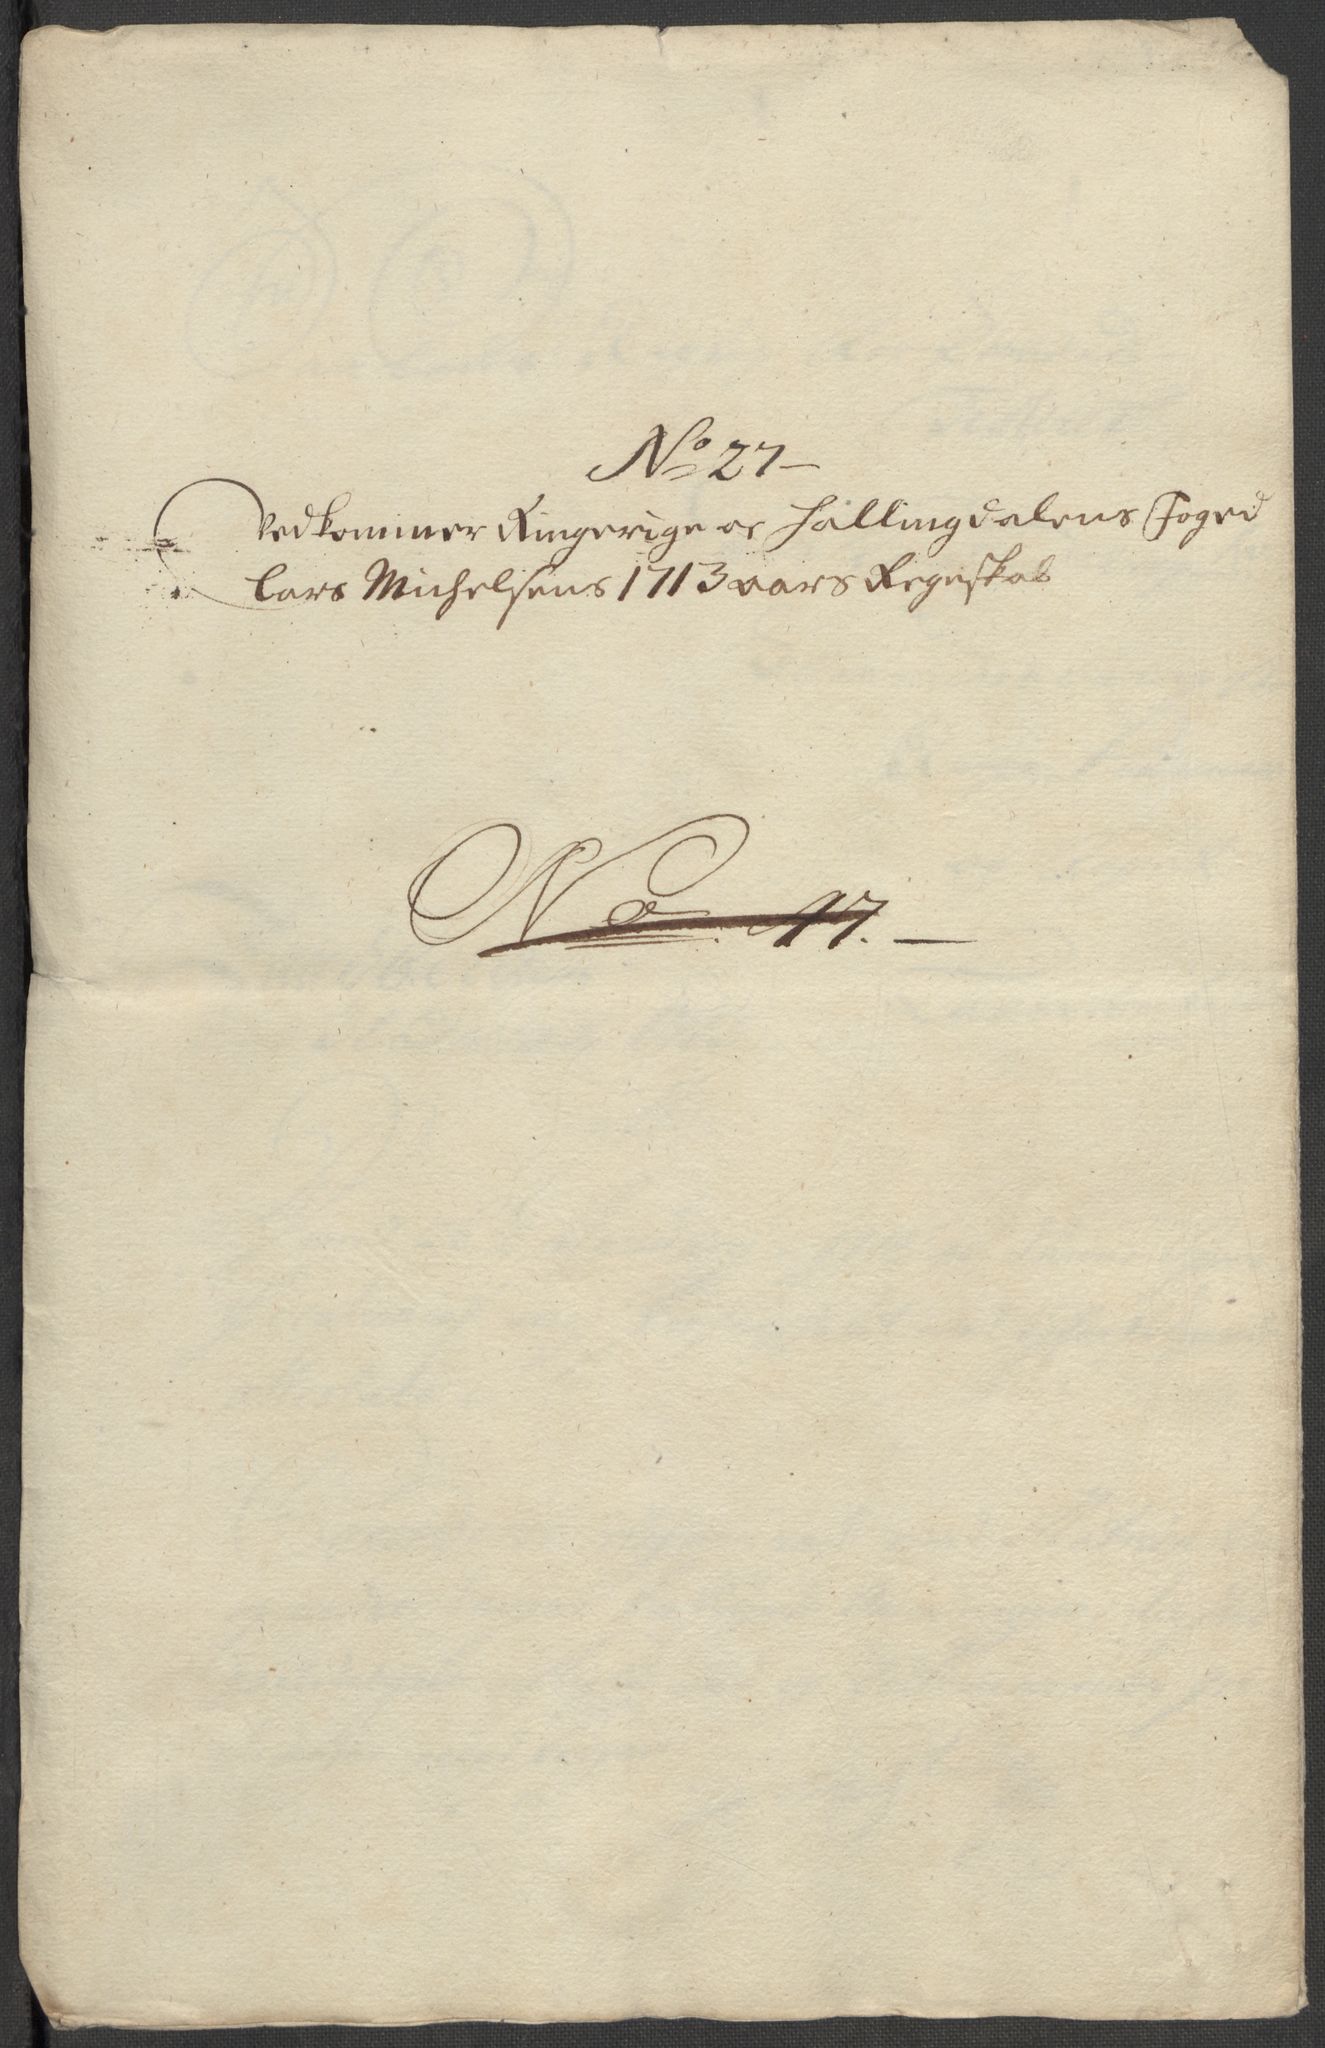 No 27
Vedkommer Ringerige oc Hallingdalens Foged
Lars Michelsens 1713 aars Regenskab
No. 47.